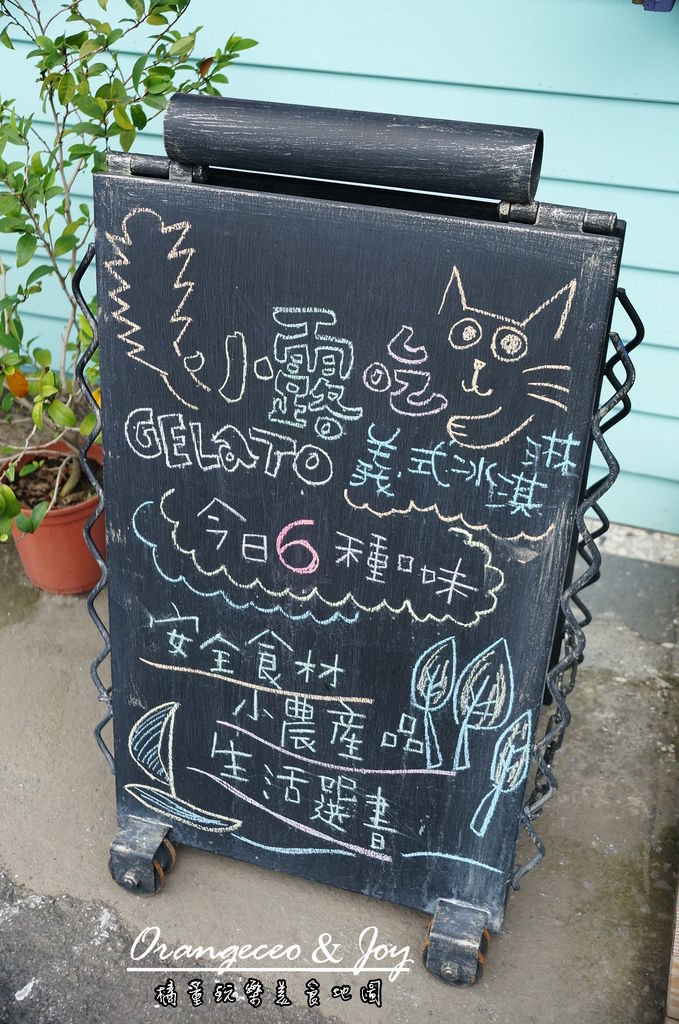 小露吃
GELATO 義式冰淇淋
今日6種口味
安全食材
小農產品
生活選書
Orangeceo & Joy
橘量玩樂美食地圖